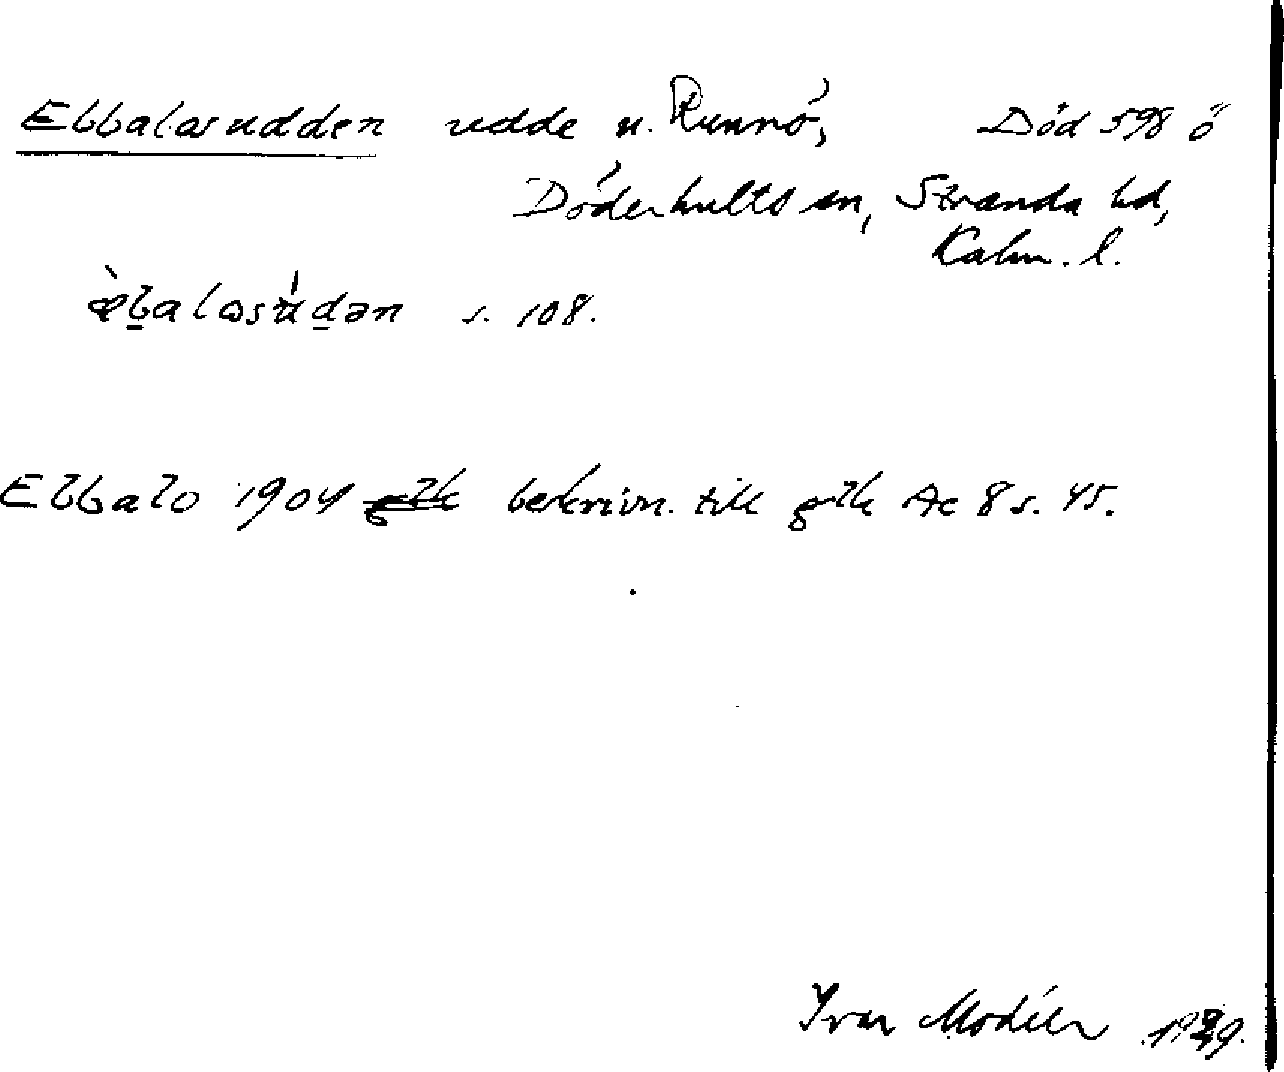 Ebbalasudden udde n. Runnö, Död 598 ö
Döderhults sn, Stranda hd,
Kalm. l.
æ̀b̲alasúd̲ən s. 108.
Ebbalo 1904 beskrivn. till gzk Ac 8 s. 45.
Ivar Modéer 1929.